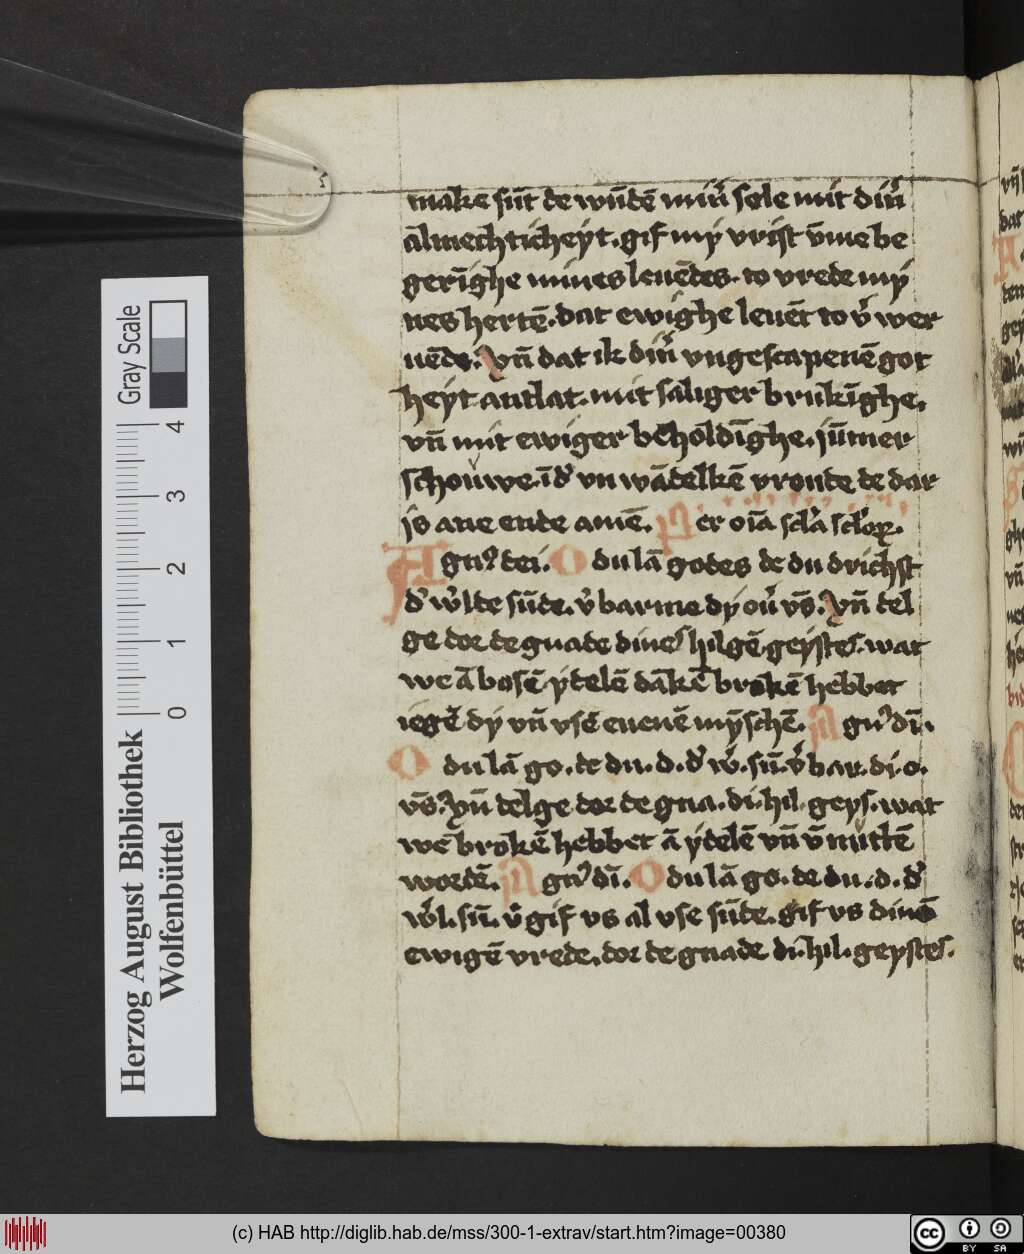 makē sūt de wūdē mın̄ sele mit dın̄
almechticheyt. gif my vrist v̄me be
gerīghe mines leuēdes. to vrede my
nes hertē. dat ewighe leuēt to v̄ wer
uēde. vn̄ dat ik dın̄ vngescapenē got
heyt antlat. mit saliger brukīghe.
vn̄ mit ewiger beholdīghe. jūmer
schouwe. ī d' vn wādelkē vronde de dar
js ane ende amē. Per oīa scl'a scl'oꝝ.
Agn⁹ dei. O du lā godes de du drichst
d' w'lde sūde. v̄barme dy ou' vs̄. vn̄ del
ge dor de gnade dines hilgē geystes. wat
we ā bosē ydelē dākē brokē hebbet
iegē dy vn̄ vsē euenē myschē. Agn⁹ dī.
O du lā go. de du. d. d' w'. sū. v̄bar. di. o.
vs̄. vn̄ delge dor de gna. di. hil. geys. wat
we brokē hebbet ā ydelē vn̄ v̄nuttē
wordē. Agn⁹ dī. O du lā go. de du. d. d'
w'l. sū. v̄gif vs al vse sūde. gif vs dinē
ewigē vrede. dor de gnade di. hil. geystes.
Gray Scale
0 1 2 3 4
Herzog August Bibliothek
Wolfenbüttel
(c) HAB http://diglib.hab.de/mss/300-1-extrav/start.htm?image=00380
cc BY SA